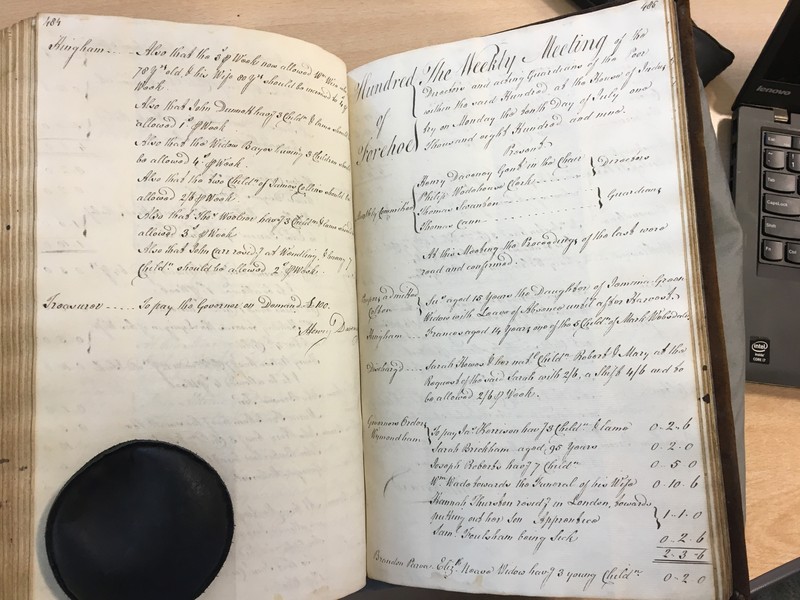 484
Hingham
Also that the 3s ⅌ Week now allowed Wm
78 Yrs old, & his Wife 80 Yrs should be increas'd to 4s ⅌
Week
Also that John Dunnett havg 3 Childn & lame should
allowed 1s ⅌ Week
Also that the Widow Bayes having 3 Children should
be allowed 4s ⅌ Week.
Also that the two Childn of James Collins should be
allowed 2/6 ⅌ Week.
Also that Thos Woolnor havg 3 Childn & lame should
allowed 3s ⅌ Week
Also that John Carr resedg at Wendling, & havg 7
Childn should be allowed 2s ⅌ Week.
Treasurer
To pay the Governor on Demand £100.
Henry
485
Hundred of Forehoe
The Weekly Meeting of the
Directors and acting Guardians of the Poor
within the said Hundred at the House of Indus
try on Monday the tenth Day of July one
Thousand eight Hundred and nine.
Present
Weekly Committee
Henry Daveney Gent in the Chair
Philip Wodehouse Clerk
Directors
Thomas Swanton
Thomas Cann
Guardians
At this Meeting the Proceedings of the last were
read and confirmed.
admitted
Coston
aged 15 Years the Daughter of Jemima Green
Widow with Leave of Absence until after Harvest.
Hingham
Frances aged 14 Years one of the 5 Childn of Mark
Dischargd
Sarah Howes & her natl Childn Robert & Mary at the
Request of the said Sarah with 2/6, a Shift 4/6 and to
be allowed 2/6 ⅌ Week.
Governors Orders
Wymondham
To pay Jas Harrison havg 3 Childn & lame 0-2-6
Sarah Brickham aged 95 Years 0-2-0
Joseph Roberts havg 7 Childn 0-5-0
Wm Wade towards the Funeral of his Wife 0-10-6
Hannah Thurston resedg in London, towards
putting out her Son Apprentice 1-1-0
Saml Foulsham being Sick 0-2-6
2-3-6
Brandon Parva Elizth Neave Widow havg 3 young Childn 0-2-0
lenovo
Esc
Tab
CapsLock
Shift
Fn
Ctrl
intel
inside
CORE i7